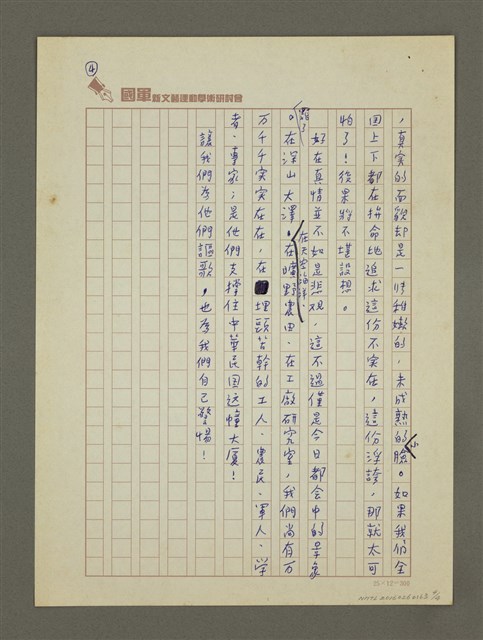 ④
國軍新文藝運動學術研討會
，真实的面貌却是一付稚嫩的，未成熟的小臉。如果我们全
国上下都在拼命地追求這份不实在，這份浮誇，那就太可
怕了！後果將不堪設想。
好在真情並不如是悲观，這不過僅是今日都会中的景象
罷了
。在深山大澤，在曠野農田，在工廠研究室，我們尚有万
在天空海洋，
万千千实实在在，在埋頭苦幹的工人、農民、軍人、学
者、專家；是他們支撐住中華民国这幢大廈！
讓我們为他們謳歌，也为我們自己警惕！
25×12=300